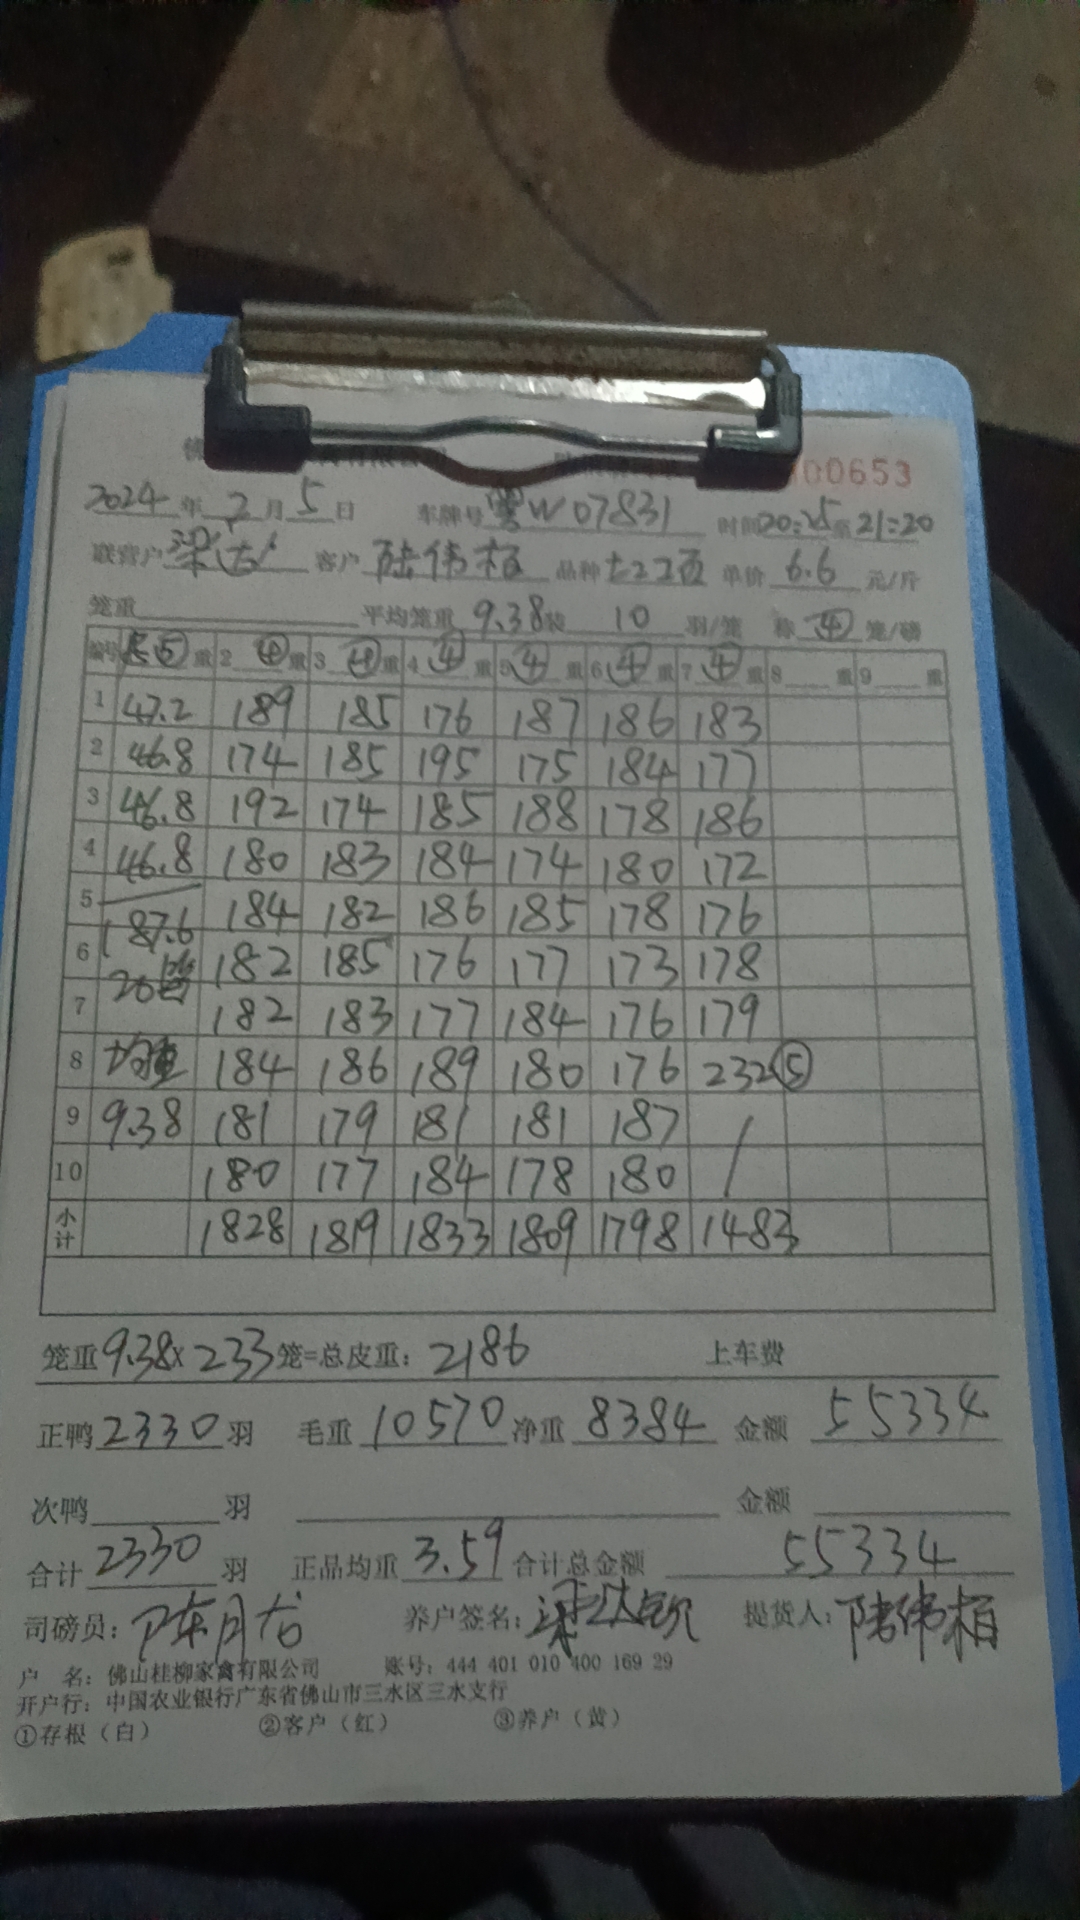 00653
2024年2月5日 车牌号粤W07831 时间20:25至21:20
联营户 客户 陆伟栢 品种 单价 6.6 元/斤
笼重 平均笼重 9.38 装 10 羽/笼 称 ④ 笼/磅
编号 ⑤ 重 2 ④ 重 3 ④ 重 4 ④ 重 5 ④ 重 6 ④ 重 7 ④ 重 8 重 9 重
1 47.2 189 185 176 187 186 183
2 46.8 174 185 195 175 184 177
3 46.8 192 174 185 188 178 186
4 46.8 180 183 184 174 180 172
5 187.6 184 182 186 185 178 176
6 20 182 185 176 177 173 178
7 182 183 177 184 176 179
8 均重 184 186 189 180 176 232⑤
9 9.38 181 179 181 181 187 /
10 180 177 184 178 180 /
小计 1828 1819 1833 1809 1798 1483
笼重9.38×233笼=总皮重：2186 上车费
正鸭2330羽 毛重10570净重8384 金额55334
次鸭 羽 金额
合计2330羽 正品均重3.59合计总金额55334
司磅员：陈月龙 养户签名： 提货人：陆伟栢
户 名：佛山桂柳家禽有限公司 账号：444 401 010 400 169 29
开户行：中国农业银行广东省佛山市三水区三水支行
①存根（白） ②客户（红） ③养户（黄）